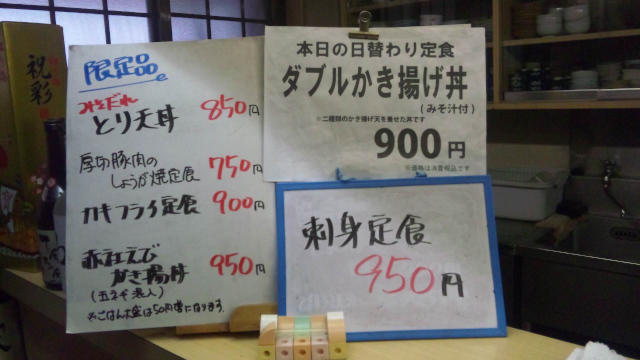 祝彩
限定品
みそだれ
とり天丼 850円
厚切豚肉の
しょうが焼定食 750円
カキフライ定食 900円
赤社えび
かき揚丼 950円
(玉ネギ混入)
※ごはん大盛は50円増になります。
本日の日替わり定食
ダブルかき揚げ丼
(みそ汁付)
※二種類のかき揚げ天を乗せた丼です
900円
※価格は消費税込です
刺身定食
950円